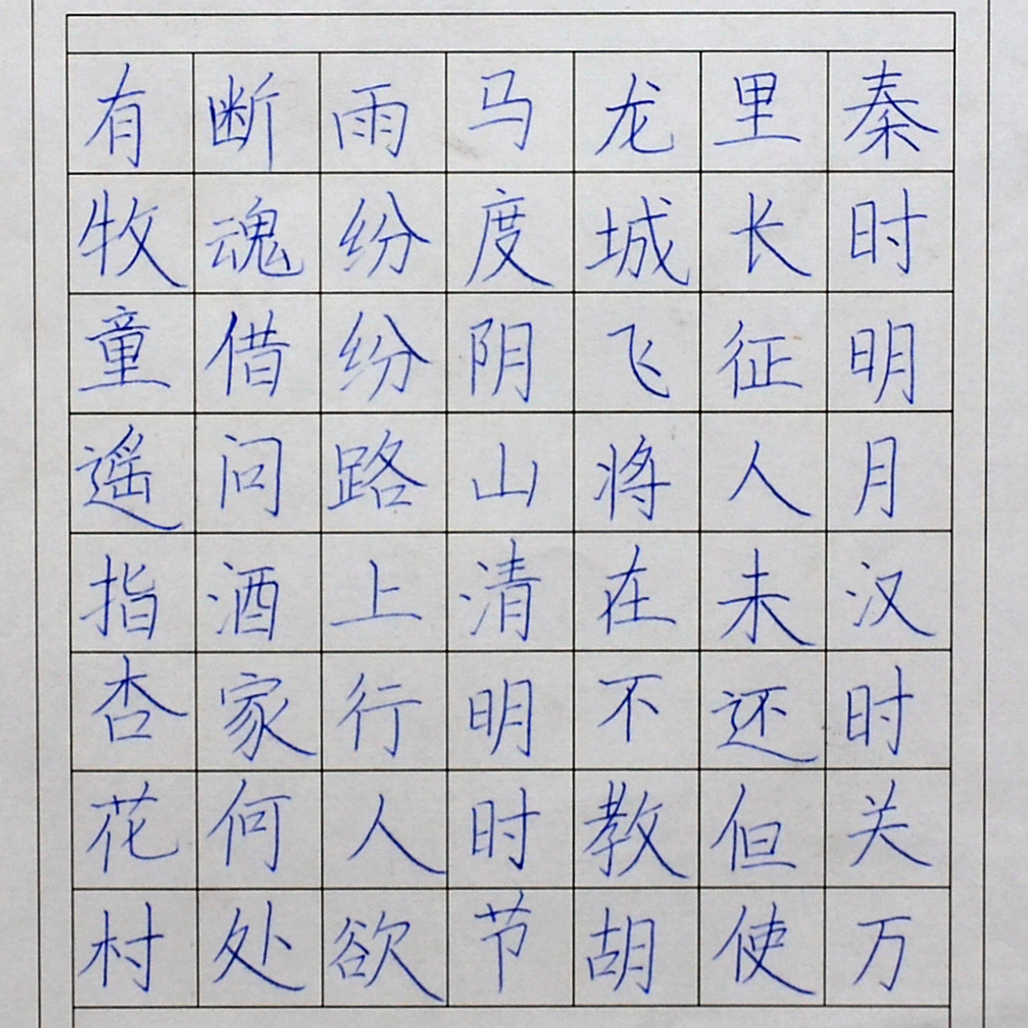 秦时明月汉时关万
里长征人未还但使
龙城飞将在不教胡
马度阴山清明时节
雨纷纷路上行人欲
断魂借问酒家何处
有牧童遥指杏花村